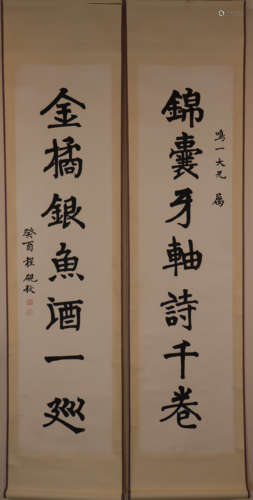 錦囊牙軸詩千卷
鳴一大兄 屬
金橘銀魚酒一
癸酉程硯秋